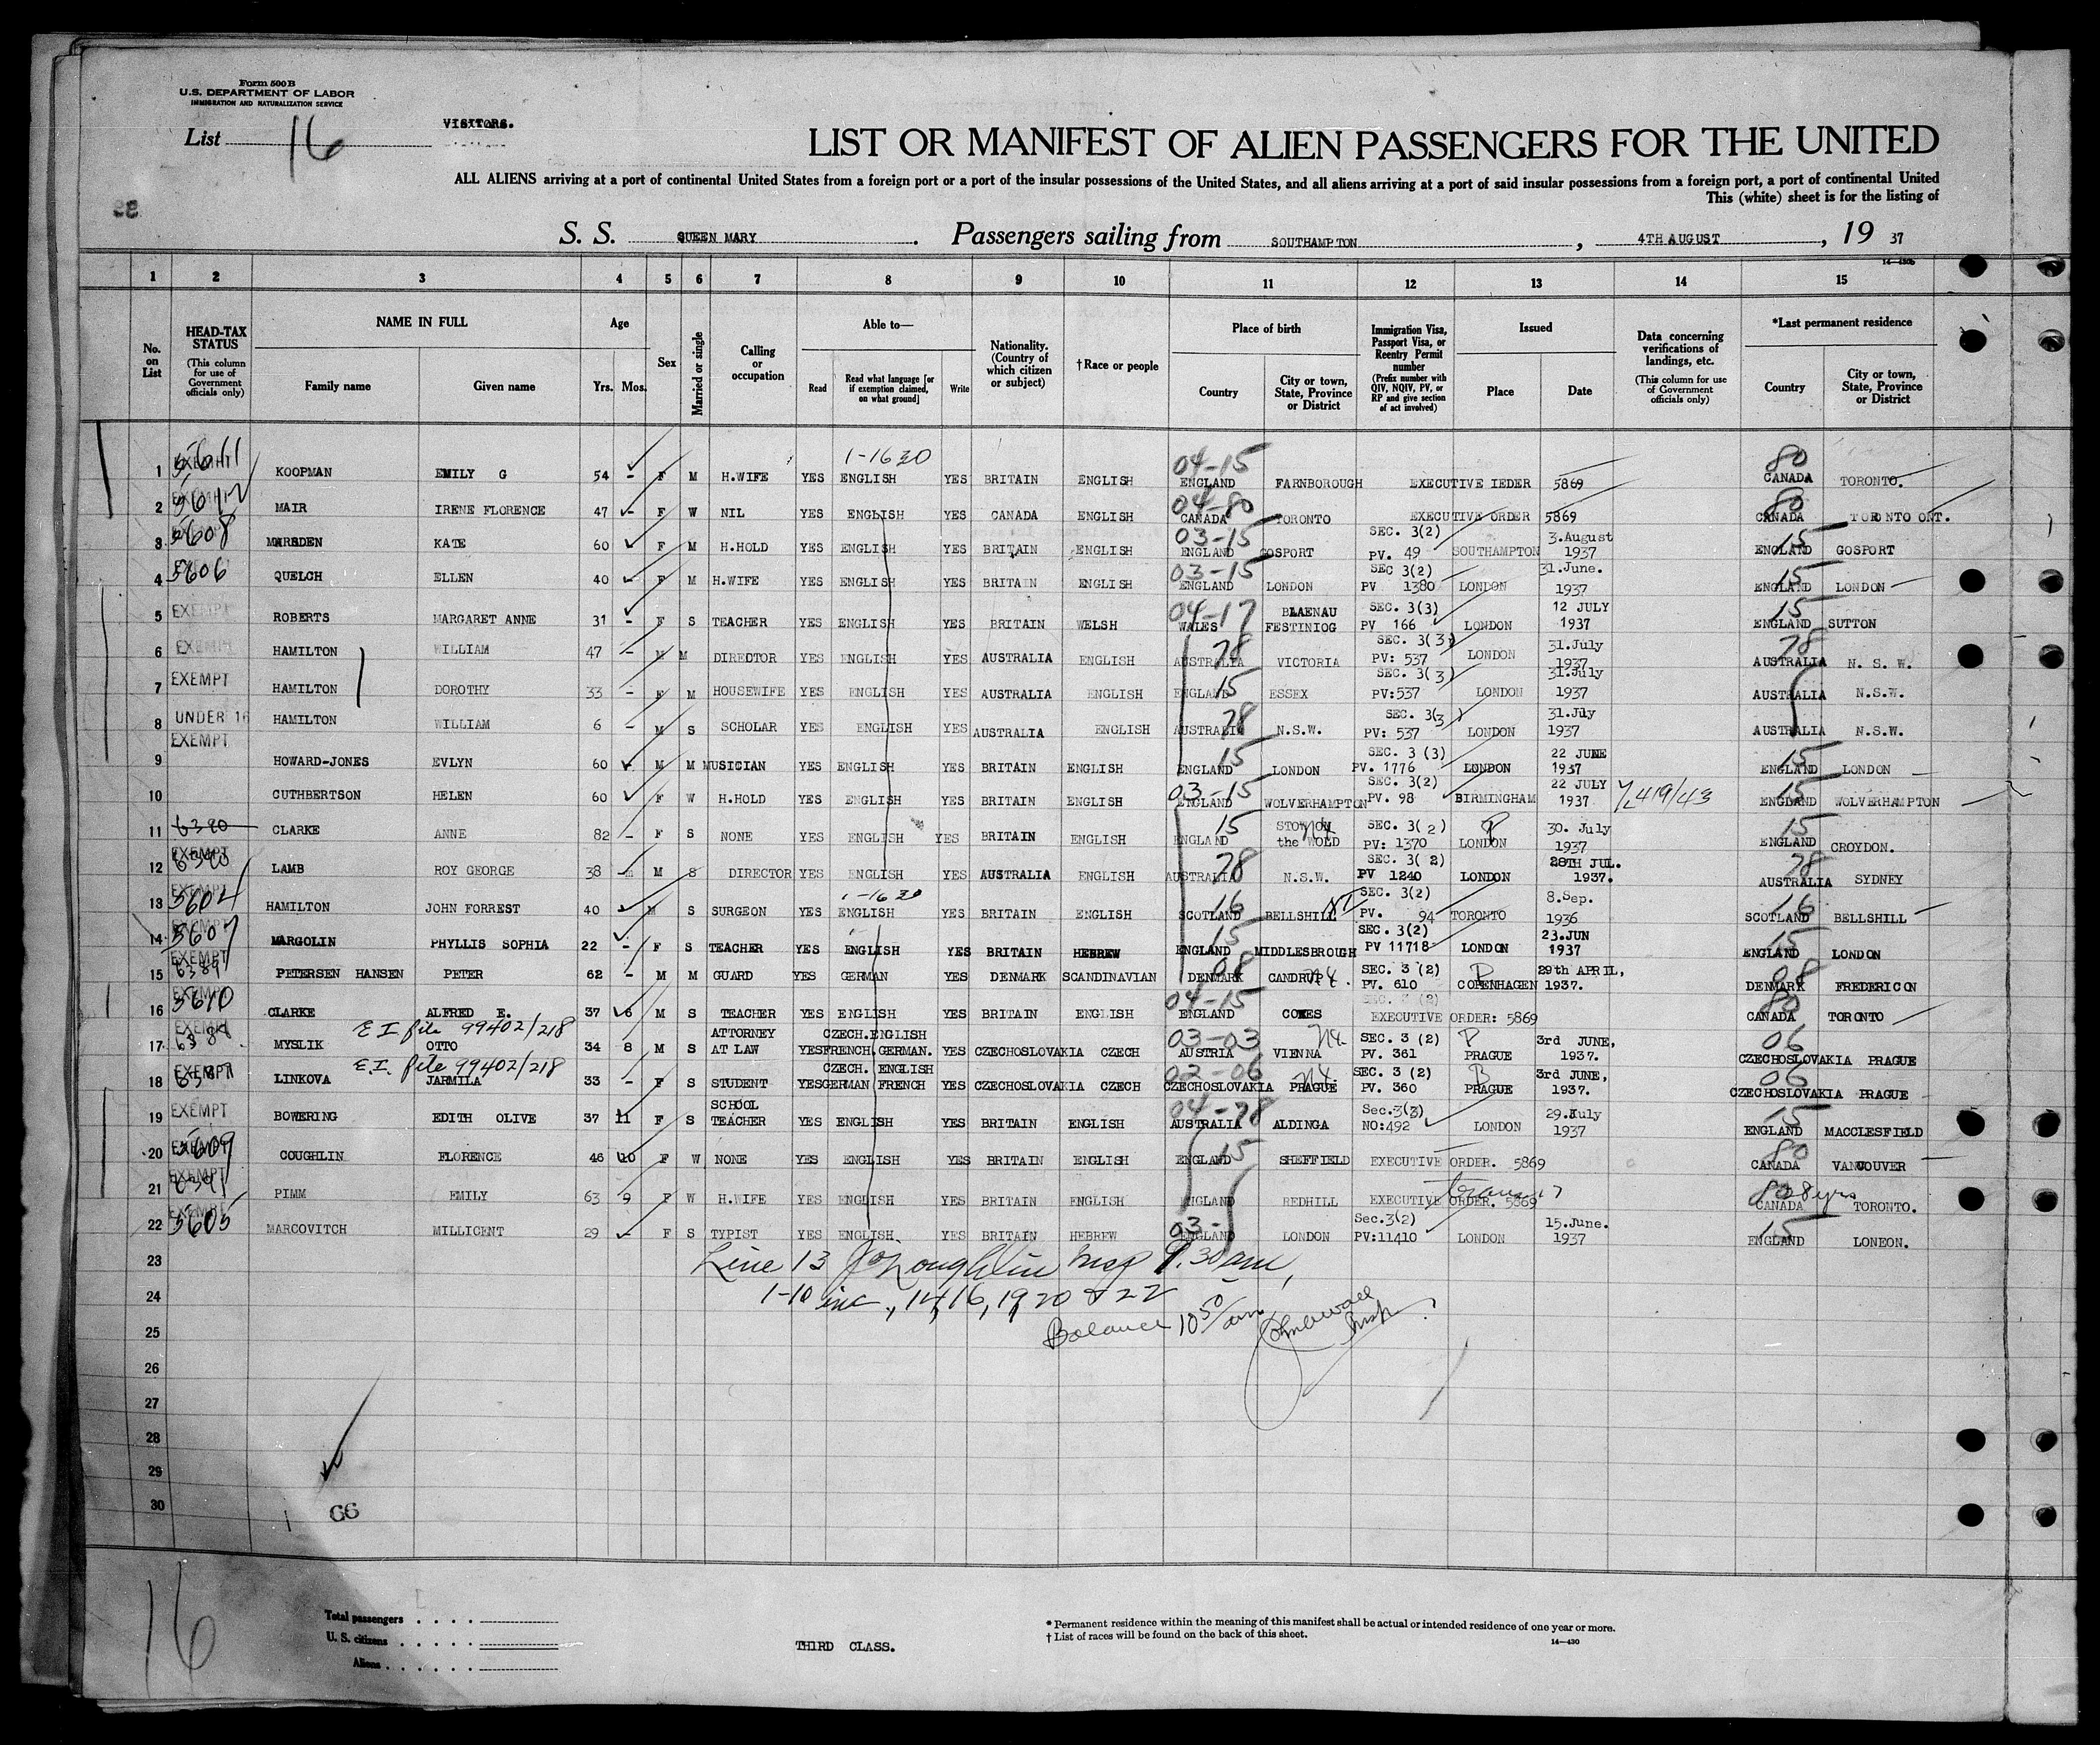 Form 500B
U.S. DEPARTMENT OF LABOR
IMMIGRATION AND NATURALIZATION SERVICE
List 16
VISITORS.
LIST OR MANIFEST OF ALIEN PASSENGERS FOR THE UNITED
ALL ALIENS arriving at a port of continental United States from a foreign port or a port of the insular possessions of the United States, and all aliens arriving at a port of said insular possessions from a foreign port, a port of continental United
This (white) sheet is for the listing of
S. S. QUEEN MARY. Passengers sailing from SOUTHAMPTON, 4TH AUGUST, 19 37
14-430b
1 2 3 4 5 6 7 8 9 10 11 12 13 14 15
No. on List
HEAD-TAX STATUS (This column for use of Government officials only)
NAME IN FULL Family name Given name
Age Yrs. Mos.
Sex
Married or single
Calling or occupation
Able to— Read Read what language [or if exemption claimed, on what ground] Write
Nationality. (Country of which citizen or subject)
†Race or people
Place of birth Country City or town, State, Province or District
Immigration Visa, Passport Visa, or Reentry Permit number (Prefix number with QIV, NQIV, PV, or RP and give section of act involved)
Issued Place Date
Data concerning verifications of landings, etc. (This column for use of Government officials only)
*Last permanent residence Country City or town, State, Province or District
1 EXEMPT 5611 KOOPMAN EMILY G 54 - F M H.WIFE YES ENGLISH 1-1630 YES BRITAIN ENGLISH 04-15 ENGLAND FARNBOROUGH EXECUTIVE IEDER 5869 80 CANADA TORONTO.
2 EXEMPT 5612 MAIR IRENE FLORENCE 47 - F W NIL YES ENGLISH YES CANADA ENGLISH 04-80 CANADA TORONTO EXECUTIVE ORDER 5869 80 CANADA TORONTO ONT.
3 EXEMPT 5608 MARSDEN KATE 60 F M H.HOLD YES ENGLISH YES BRITAIN ENGLISH 03-15 ENGLAND GOSPORT SEC. 3(2) PV. 49 SOUTHAMPTON 3.August 1937 15 ENGLAND GOSPORT
4 5606 QUELCH ELLEN 40 - F M H.WIFE YES ENGLISH YES BRITAIN ENGLISH 03-15 ENGLAND LONDON SEC 3(2) PV 1380 LONDON 31.June. 1937 15 ENGLAND LONDON
5 EXEMPT ROBERTS MARGARET ANNE 31 - F S TEACHER YES ENGLISH YES BRITAIN WELSH 04-17 WALES BLAENAU FESTINIOG SEC. 3(3) PV 166 LONDON 12 JULY 1937 15 ENGLAND SUTTON
6 EXEMPT HAMILTON WILLIAM 47 - M M DIRECTOR YES ENGLISH YES AUSTRALIA ENGLISH 78 AUSTRALIA VICTORIA SEC. 3(3) PV: 537 LONDON 31.July 1937 78 AUSTRALIA N. S. W.
7 EXEMPT HAMILTON DOROTHY 33 - F M HOUSEWIFE YES ENGLISH YES AUSTRALIA ENGLISH 15 ENGLAND ESSEX SEC. 3(3) PV:537 LONDON 31.July 1937 AUSTRALIA N.S.W.
8 UNDER 16 HAMILTON WILLIAM 6 - M S SCHOLAR YES ENGLISH YES AUSTRALIA ENGLISH 78 AUSTRALIA N.S.W. SEC. 3(3) PV: 537 LONDON 31.July 1937 AUSTRALIA N.S.W.
9 EXEMPT HOWARD-JONES EVLYN 60 - M M MUSICIAN YES ENGLISH YES BRITAIN ENGLISH 15 ENGLAND LONDON SEC. 3 (3) PV. 1776 LONDON 22 JUNE 1937 15 ENGLAND LONDON
10 CUTHBERTSON HELEN 60 F W H.HOLD YES ENGLISH YES BRITAIN ENGLISH 03-15 ENGLAND WOLVERHAMPTON SEC. 3(2) PV. 98 BIRMINGHAM 22 JULY 1937 15 ENGLAND WOLVERHAMPTON
11 6380 CLARKE ANNE 82 - F S NONE YES ENGLISH YES BRITAIN ENGLISH 15 ENGLAND STOW on the WOLD SEC. 3(2) PV: 1370 LONDON 30. July 1937 15 ENGLAND CROYDON.
12 EXEMPT LAMB ROY GEORGE 38 M S DIRECTOR YES ENGLISH YES AUSTRALIA ENGLISH 78 AUSTRALIA N.S.W. SEC. 3( 2) PV 1240 LONDON 28TH JUL. 1937. 78 AUSTRALIA SYDNEY
13 EXEMPT 5604 HAMILTON JOHN FORREST 40 M S SURGEON YES ENGLISH 1-1630 YES BRITAIN ENGLISH 16 SCOTLAND BELLSHILL SEC. 3(2) PV. 94 TORONTO 8.Sep. 1936 16 SCOTLAND BELLSHILL
14 EXEMPT 5607 MARGOLIN PHYLLIS SOPHIA 22 - F S TEACHER YES ENGLISH YES BRITAIN HEBREW 15 ENGLAND MIDDLESBROUGH SEC. 3(2) PV 11718 LONDON 23.JUN 1937 15 ENGLAND LONDON
15 EXEMPT 6389 PETERSEN HANSEN PETER 62 - M M GUARD YES GERMAN YES DENMARK SCANDINAVIAN 08 DENMARK CANDRUP. SEC. 3 (2) PV. 610 COPENHAGEN 29th APRIL, 1937. 08 DENMARK FREDERICON
16 EXEMPT 5610 CLARKE ALFRED E. 37 6 M S TEACHER YES ENGLISH YES BRITAIN ENGLISH 04-15 ENGLAND SEC. 3 (2) EXECUTIVE ORDER: 5869 80 CANADA TORONTO
E.I. file 99402/218
17 EXEMPT 6388 MYSLIK OTTO 34 8 M S ATTORNEY AT LAW YES CZECH.ENGLISH FRENCH.GERMAN. YES CZECHOSLOVAKIA CZECH 03-03 AUSTRIA VIENNA SEC. 3 (2) PV. 361 PRAGUE 3rd JUNE, 1937. 06 CZECHOSLOVAKIA PRAGUE
E.I. file 99402/218
18 EXEMPT LINKOVA JARMILA 33 - F S STUDENT YES CZECH. ENGLISH GERMAN FRENCH YES CZECHOSLOVAKIA CZECH 02-06 CZECHOSLOVAKIA PRAGUE SEC. 3 (2) PV. 360 PRAGUE 3rd JUNE, 1937. 06 CZECHOSLOVAKIA PRAGUE
19 EXEMPT BOWERING EDITH OLIVE 37 11 F S SCHOOL TEACHER YES ENGLISH YES BRITAIN ENGLISH 04-78 AUSTRALIA ALDINGA Sec.3(3) NO:492 LONDON 29.July 1937 15 ENGLAND MACCLESFIELD
20 EXEMPT 5609 COUGHLIN FLORENCE 46 10 F W NONE YES ENGLISH YES BRITAIN ENGLISH 15 ENGLAND SHEFFIELD EXECUTIVE ORDER. 5869 80 CANADA VANCOUVER
21 EXEMPT 6391 PIMM EMILY 63 9 F W H.WIFE YES ENGLISH YES BRITAIN ENGLISH ENGLAND REDHILL EXECUTIVE ORDER. 5869 80 28yrs CANADA TORONTO.
22 EXEMPT 5605 MARCOVITCH MILLICENT 29 - F S TYPIST YES ENGLISH YES BRITAIN HEBREW 03- ENGLAND LONDON Sec.3(2) PV:11410 LONDON 15.June. 1937 15 ENGLAND LONEON.
23 Line 13 Insp 9.30 am,
24 1-10 inc., 14, 16, 19, 20 & 22
25 Balance 10 50/am Insp.
26
27
28
29
30
66
16
Total passengers
U. S. citizens
Aliens
THIRD CLASS.
* Permanent residence within the meaning of this manifest shall be actual or intended residence of one year or more.
† List of races will be found on the back of this sheet.
14—430